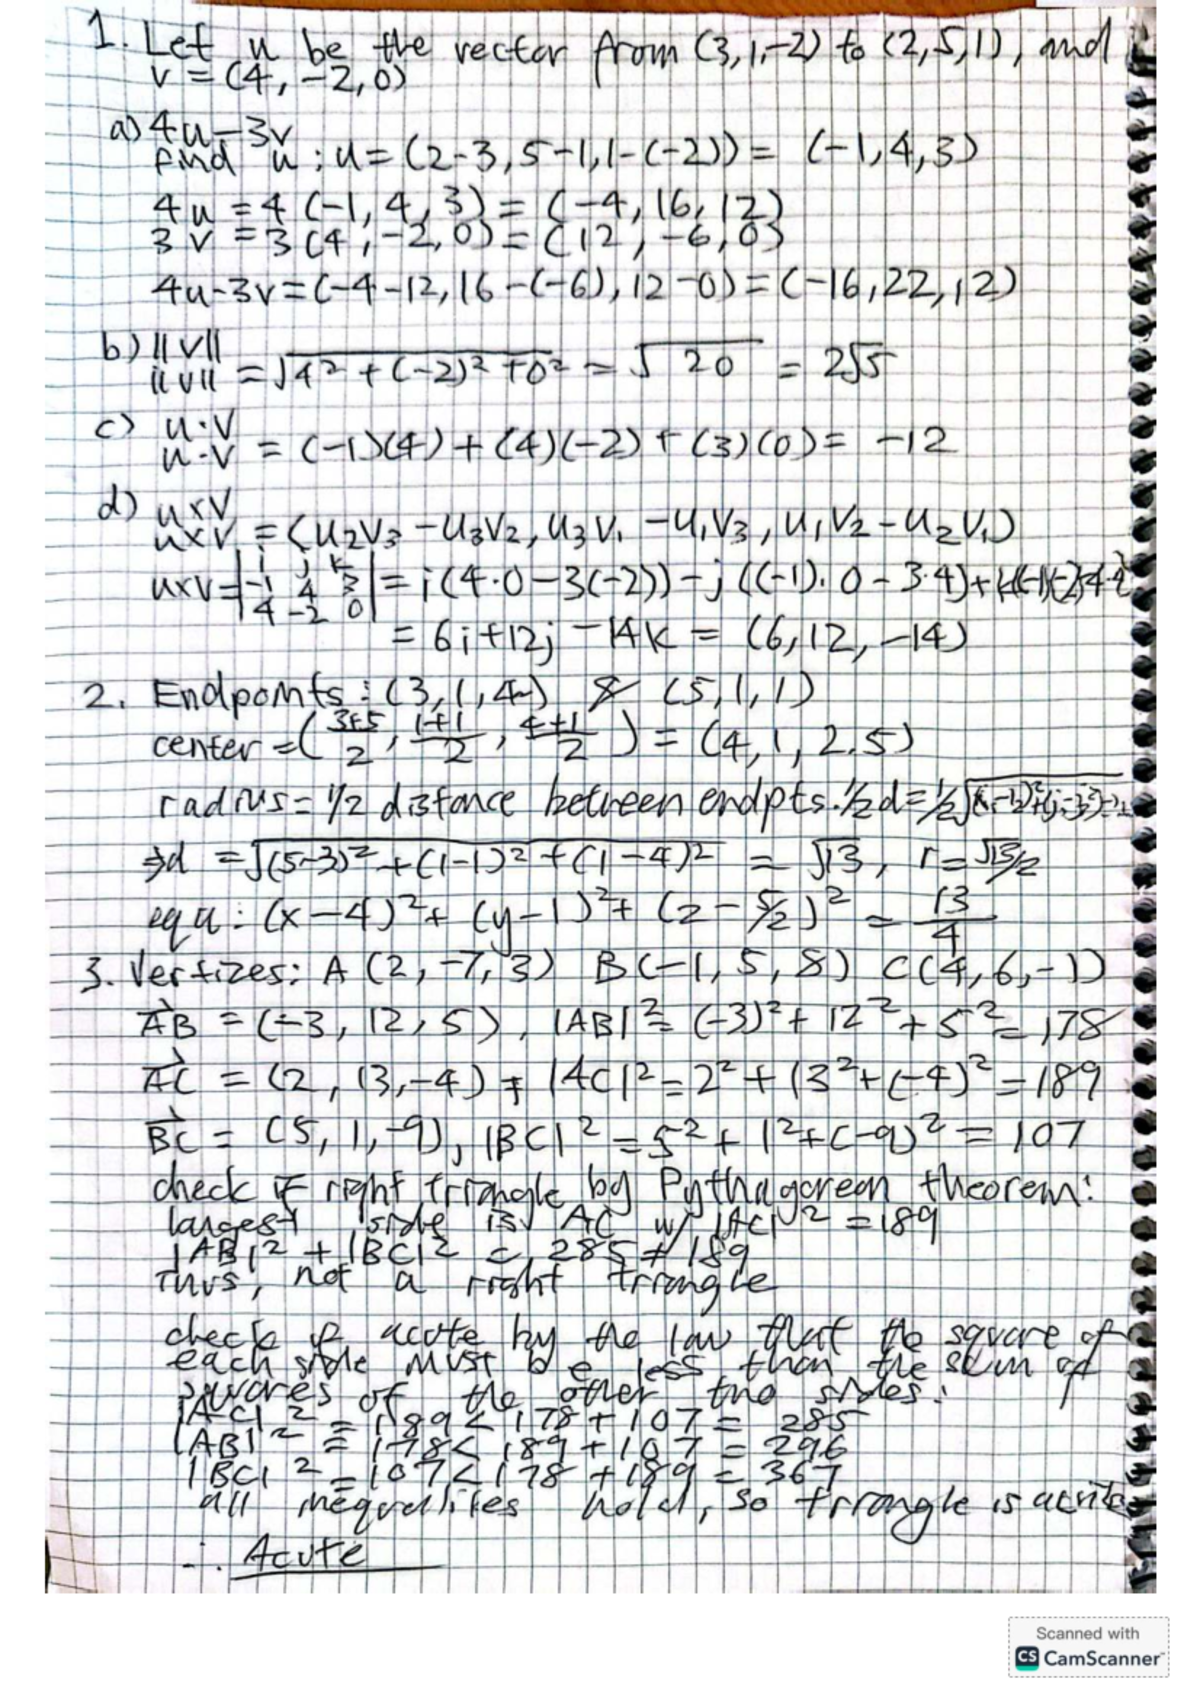 1. Let u be the vector from (3,1,-2) to (2,5,1), and
v = (4, -2,0)
a) 4u-3v
find u; u= (2-3,5-1,1-(-2)) = (-1,4,3)
4u = 4 (-1, 4, 3) = (-4, 16, 12)
3v = 3 (4, -2, 0) = (12, -6, 0)
4u-3v = (-4-12, 16-(-6), 12-0) = (-16,22,12)
b) ||v||
||v|| = √4² + (-2)² + 0² = √20 = 2√5
c) u·v
u·v = (-1)(4) + (4)(-2) + (3)(0) = -12
d) u×v
u×v = (u₂v₃ - u₃v₂, u₃v₁ - u₁v₃, u₁v₂ - u₂v₁)
i j k
u×v = |-1 4 3| = i(4·0-3(-2)) - j((-1)·0-3·4) +
4 -2 0
= 6i+12j-14k = (6,12,-14)
2. Endpoints: (3,1,4) & (5,1,1)
center = (3+5/2, 1+1/2, 4+1/2) = (4,1,2.5)
radius = 1/2 distance between endpts. 1/2d = 1/2√
⇒d = √(5-3)² + (1-1)² + (1-4)² = √13, r = √13/2
equ: (x-4)² + (y-1)² + (z-5/2)² = 13/4
3. Vertizes: A (2,-7,3) B(-1,5,8) C(4,6,-1)
AB = (-3, 12, 5), |AB|² = (-3)² + 12² + 5² = 178
AC = (2, 13,-4), |AC|² = 2² + 13² + (-4)² = 189
BC = (5, 1,-9), |BC|² = 5² + 1² + (-9)² = 107
check if right triangle by Pythagorean theorem:
largest side is AC w/ |AC|² = 189
|AB|² + |BC|² = 285 ≠ 189
Thus, not a right triangle
check if acute by the law that the square of
each side must be less than the sum of
squares of the other two sides:
|AC|² = 189 < 178 + 107 = 285
|AB|² = 178 < 189 + 107 = 296
|BC|² = 107 < 178 + 189 = 367
all inequalities hold, so triangle is acute
∴ Acute
Scanned with
CS CamScanner